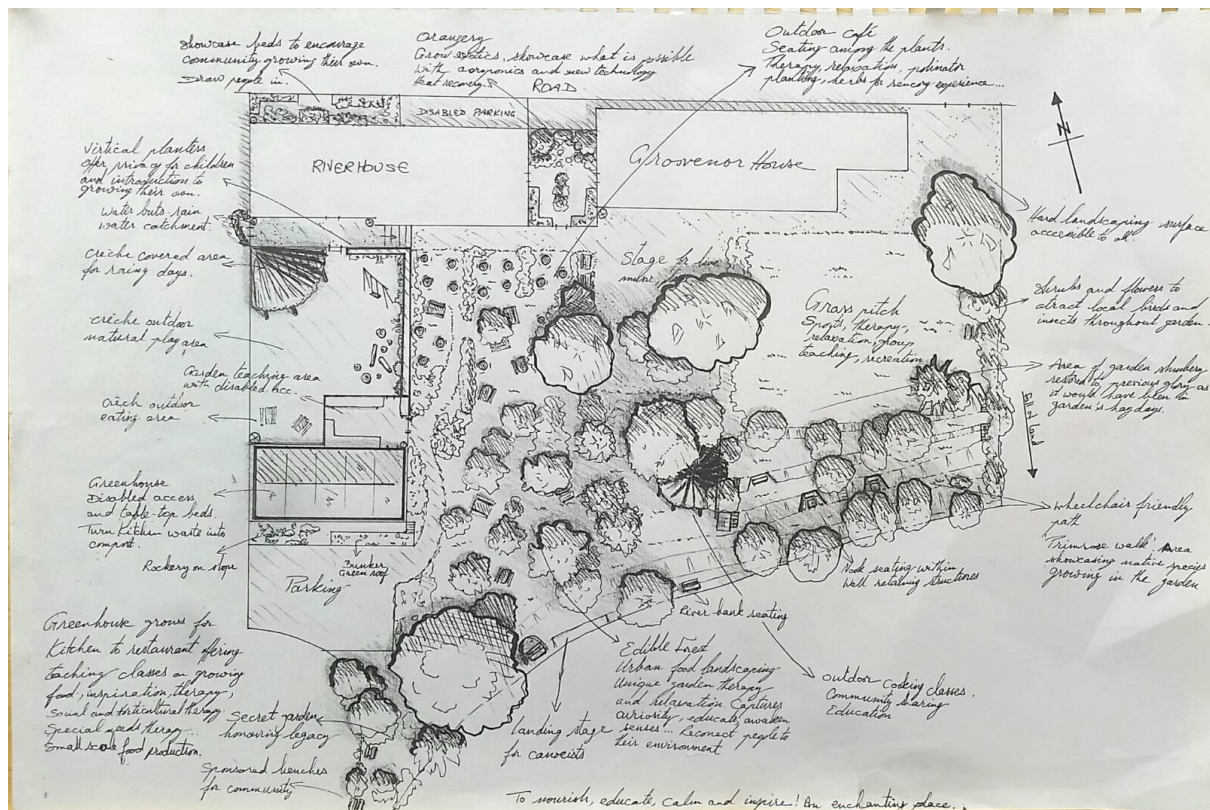 Showcase beds to encourage
community growing their own.
Draw people in.
Orangery
Grow exotics, showcase what is possible
with aeroponics and new technology
Heat recovery.
ROAD
Outdoor café
Seating among the plants.
Therapy, relaxation, polinator
planting, herbs for sensory experience...
DISABLED PARKING
RIVERHOUSE
Groovenor House
N
Vertical planters
offer privacy for children
and introduction to
growing their own.
Water buts rain
water catchment.
Crèche covered area
for rainy days.
Crèche outdoor
natural play area
Garden teaching area
with disabled acc.
Crèch outdoor
eating area
Greenhouse
Disabled access
and table-top beds.
Turn Kitchen waste into
compost.
Rockery on slope
Bunker
Green roof
Parking
Stage for live
music
Grass pitch
Sports, therapy,
relaxation, group
teaching, recreation
Hard landscaping surface
accessible to all.
Shrubs and flowers to
atract local birds and
insects throughout garden.
Area of garden shrubbery
restored to previous glory as
it would have been in
garden's haydays.
Fall of land
Wheelchair friendly
path
'Primrose walk' Area
showcasing native species
growing in the garden
Nook seating within
wall retaining structures
River bank seating
Greenhouse grows for
Kitchen to restaurant offering
teaching classes on growing
food, inspiration, therapy,
Social and horticultural therapy.
Special needs therapy...
Small scale food production.
Secret garden
honouring legacy
Sponsored benches
for community
Landing stage
for canoeists
Edible Forest
Urban food landscaping
Unique garden therapy
and relaxation Captures
curiosity, educate, awaken
senses... Reconect people to
their environment
Outdoor cooking classes.
Community sharing
Education
To nourish, educate, calm and inspire! An enchanting place.